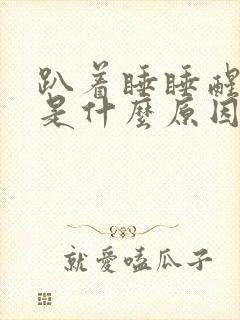 趴着睡睡醒
是什麼原因
就愛嗑瓜子